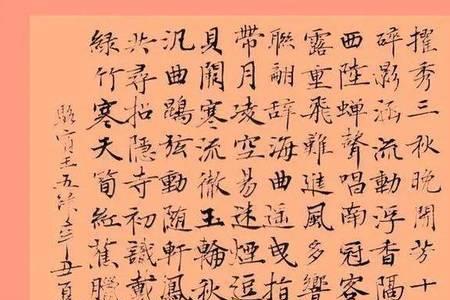 擢秀三秋晚開芳十
碎影涵流動浮香隔
西陸蟬聲唱南冠客
露重飛難進風多響
聯翩辭海曲遙曳指
帶月凌空易迷煙逗
貝闕寒流徹玉輪秋
汎曲鵾弦動随軒鳳
共尋招隱寺初識戴
綠竹寒天筍紅蕉臘
駱賓王五 辛丑夏